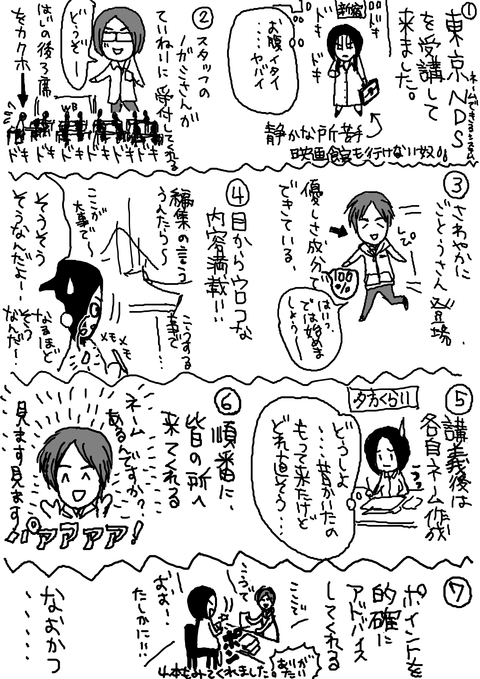 ①
東京NDS
ネームできるセミナー
を受講して
来ました。
新宿
ドキ
ドキ
ドキ
ドキ
お腹イタイ
‥‥ヤバイ
静かな所苦手
映画館も行けない奴。
②
スタッフの
ノガミさんが
ていねいに受付してくれる
どうぞー
はじの後ろ席
をカクホ→
WB
ドキドキドキドキドキドキ
③
さわやかに
ごとうさん登場、
優しさ成分で
できている。
100%
はいっ、
では始め
ましょうー
④
目からウロコな
内容満載!!
編集の言う
うんたら〜
ここが
大事で、
こうする
事で‥
そうそう
そうなんだよー!
メモ
メモ
なるほど
そう
なんだー!
⑤
講義後は
各自ネーム作成
夕方くらい
どうしよ
‥‥昔かいたの
もって来たけど
どれ直そう‥‥
⑥
順番に、
皆の所へ
来てくれる
ネーム
あるんですか?
見ます見ます!
パァァァァ!
⑦
ポイントを
的確に
アドバイス
してくれる
ここを
こうで
おお‥
たしかに!!
ポン
ありがたい
4本もみてくれました。
なおかつ
‥‥‥